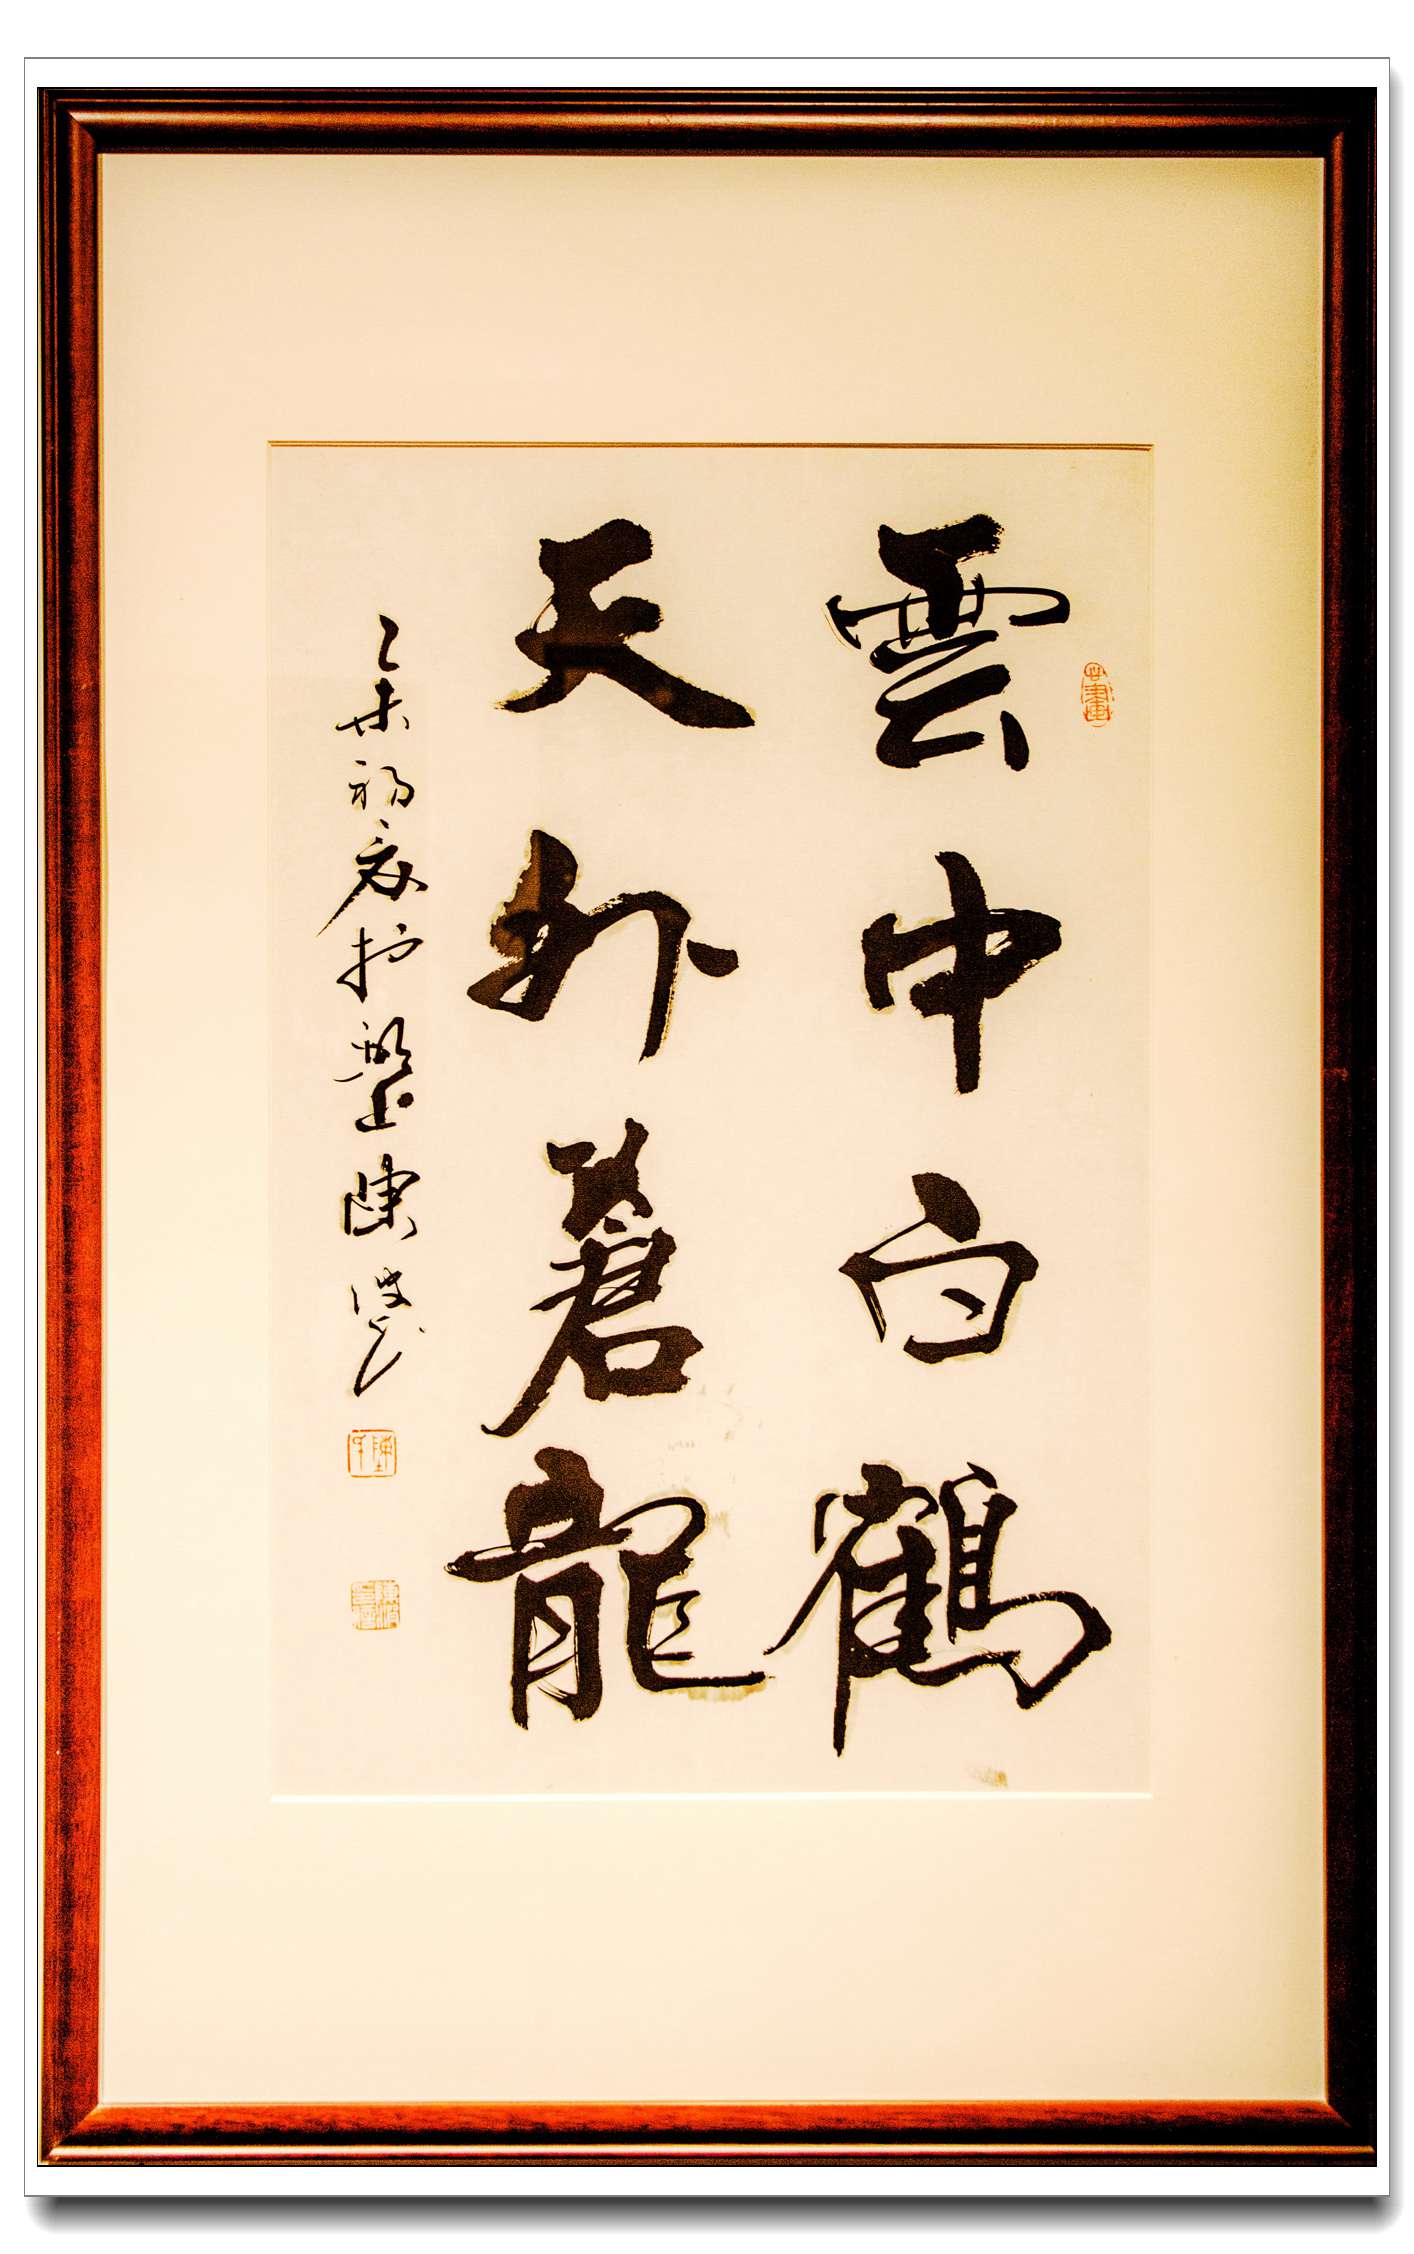 雲中白鶴
天外蒼龍
乙未初夏於盤山陳